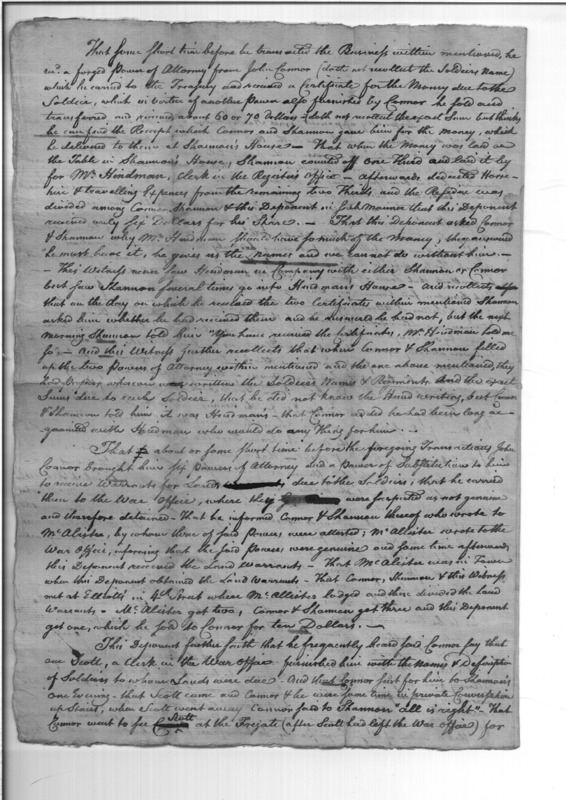 That some short time before he transacted the Business within mentioned, he
recd. a forged Power of Attorney from John Connor (doth not recollect the Soldiers Name)
which he carried to the Treasury and received a Certificate for the Money due to the
Soldier, which in virtue of another Power also furnished by Connor he sold and
transferred, and received about 60 or 70 dollars, doth not recollect the exact Sum but thinks
he can find the Receipt which Connor and Shannon gave him for the money, which
he delivered to them at Shannon's House — That when the Money was laid on
the Table in Shannon's House, Shannon counted off One Third and laid it by
for Mr. Hindman, Clerk in the Register's Office — afterwards deducted Horse-
hire & travelling Expences from the remaining two Thirds, and the Residue was
divided among Connor Shannon & this Deponent in such Manner that this Deponent
received only Six Dollars for his Share. — That this Deponent asked Connor
& Shannon why Mr. Hindman should have so much of the Money, they answered
he must have it, he gives us the Names and we cannot do without him. —
— This Witness never saw Hindman in Company with either Shannon or Connor
but saw Shannon several times go into Hindman's House — And recollects
that on the day on which he received the two Certificates within mentioned Shannon
asked him whether he had received them and he answered he had not, but the next
morning Shannon told him "You have received the Certificates, Mr. Hindman told me
so" — And this Witness further recollects that when Connor & Shannon filled
up the two Powers of Attorney within mentioned and the one above mentioned, they
had a whereon was written the Soldiers Name & Regiments And the exact
Sums due to each Soldier, that he did not know the Hand writing, but Connor
& Shannon told him it was Hindmans — that Connor added he had been long ac-
quainted with Hindman who would do any thing for him. —
That about or some short time before the foregoing Transactions John
Connor brought him six Powers of Attorney and a Power of Substitution to him
to receive Warrants for Lands due to the Soldiers, that he carried
them to the War Office, where they were suspected as not genuine
and therefore detained — That he informed Connor & Shannon thereof who wrote to
Mr. Alister, by whom three of said Powers were attested; Mr. Alister wrote to the
War Office, informing that the said Powers were genuine and some time afterwards
this Deponent received the Land Warrants — That Mr. Alister was in Town
when this Deponent obtained the Land Warrants — That Connor, Shannon & this Witness
met at Elliott's in 4th. Street where Mr. Allister lodged and there divided the Land
Warrants — Mr. Alister got two, Connor & Shannon got three and this Deponent
got one, which he sold to Connor for ten Dollars. —
This Deponent further saith that he frequently heard said Connor say that
one Scott, a Clerk in the War Office furnished him with the Names & Description
of Soldiers to whom Lands were due — And that Connor sent for him to Shannon's
one Evening — that Scott came and Connor & he were some time in private Conversation
up Stairs, when Scott went away Connor said to Shannon "All is right" — That
Connor went to see Scott at the Frigate (after Scott had left the War Office) for